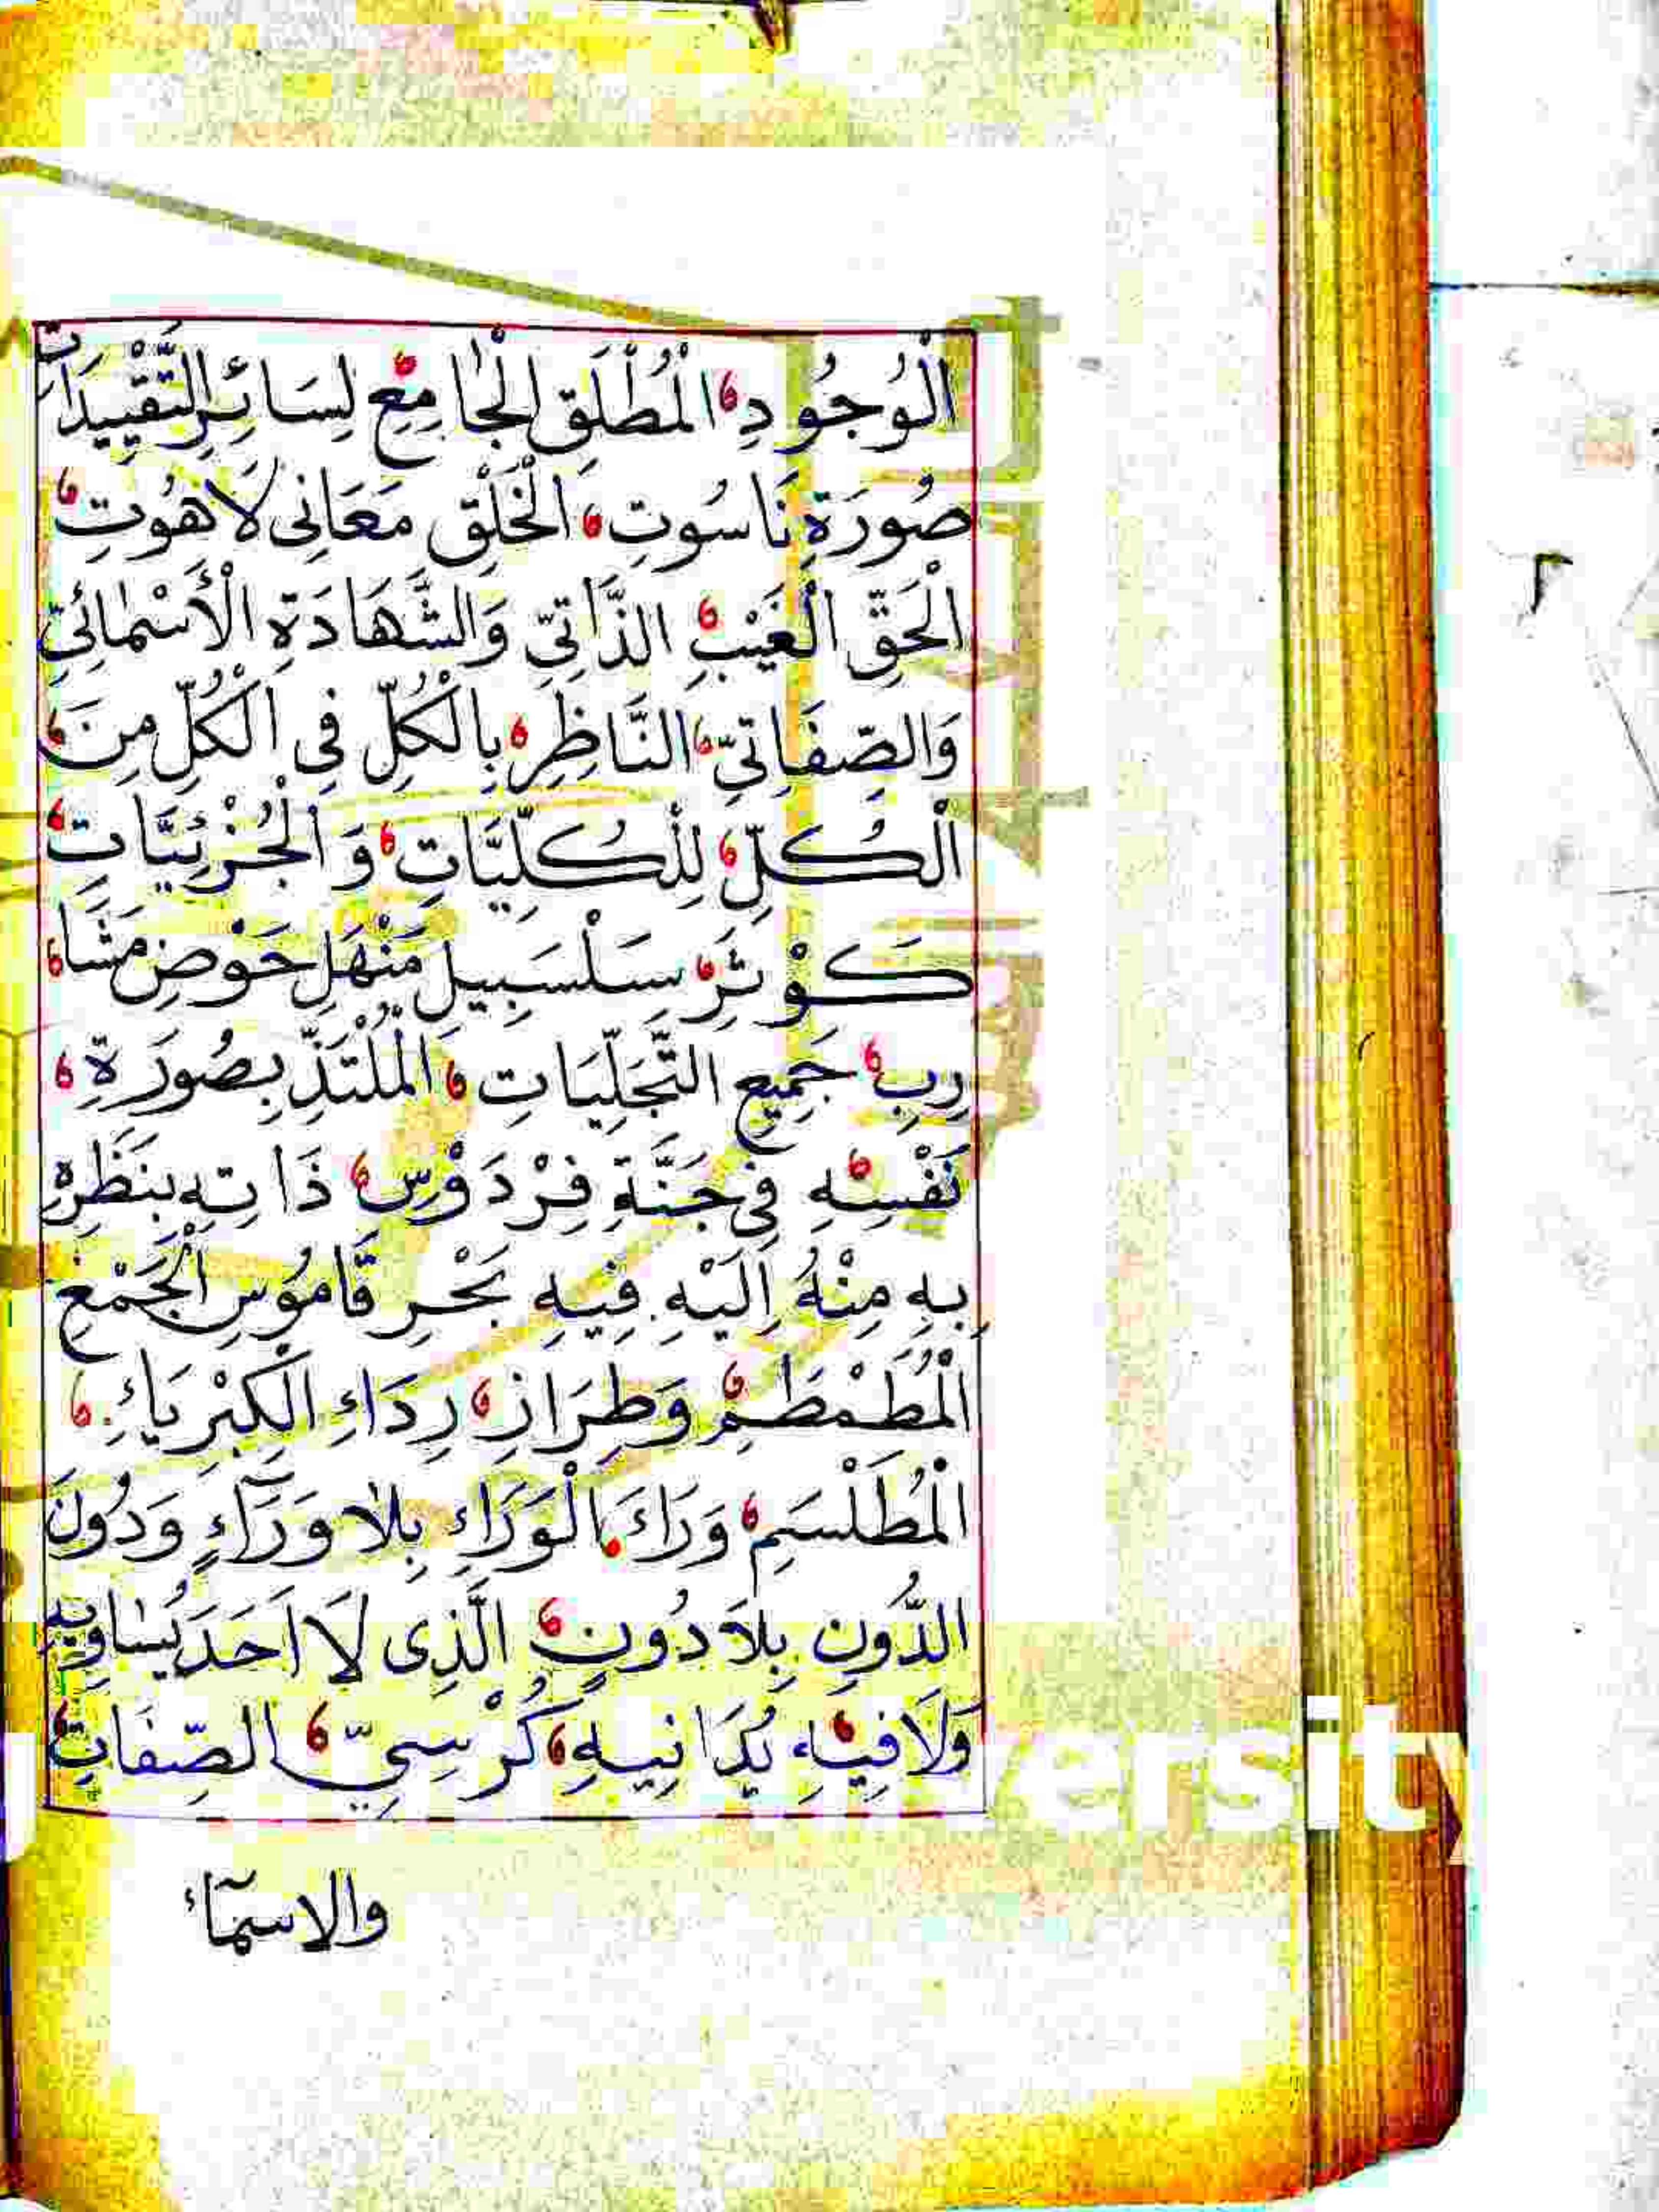 الْوُجُودِ الْمُطْلَقِ الْجَامِعِ لِسَائِرِ التَّقْيِيدَاتِ
صُورَةِ نَاسُوتِ الْخَلْقِ مَعَانِى لَاهُوتِ
الْحَقِّ الْغَيْبِ الذَّاتِيِّ وَالشَّهَادَةِ الْأَسْمَائِيِّ
وَالصِّفَاتِيِّ النَّاظِرِ بِالْكُلِّ فِى الْكُلِّ مِنَ
الْكُلِّ لِلْكُلِّيَّاتِ وَالْجُزْئِيَّاتِ
كَوْثَرِ سَلْسَبِيلِ مَنْهَلِ حَوْضِ مَشَا
رِبِ جَمِيعِ التَّجَلِّيَاتِ الْمُلْتَذِّ بِصُورَةِ
نَفْسِهِ فِى جَنَّةِ فِرْدَوْسِ ذَاتِهِ بِنَظَرِهِ
بِهِ مِنْهُ اِلَيْهِ فِيهِ بَحْرِ قَامُوسِ الْجَمْعِ
الْمُطَمْطَمِ وَطِرَازِ رِدَاءِ الْكِبْرِيَاءِ
الْمُطَلْسَمِ وَرَاءَ الْوَرَاءِ بِلَا وَرَآءٍ وَدُونَ
الدُّونِ بِلَا دُونٍ الَّذِى لَا اَحَدَ يُسَاوِيهِ
وَلَا فِيَاءِ يُدَانِيهِ كُرْسِيِّ الصِّفَاتِ
والاسمآء
ersity